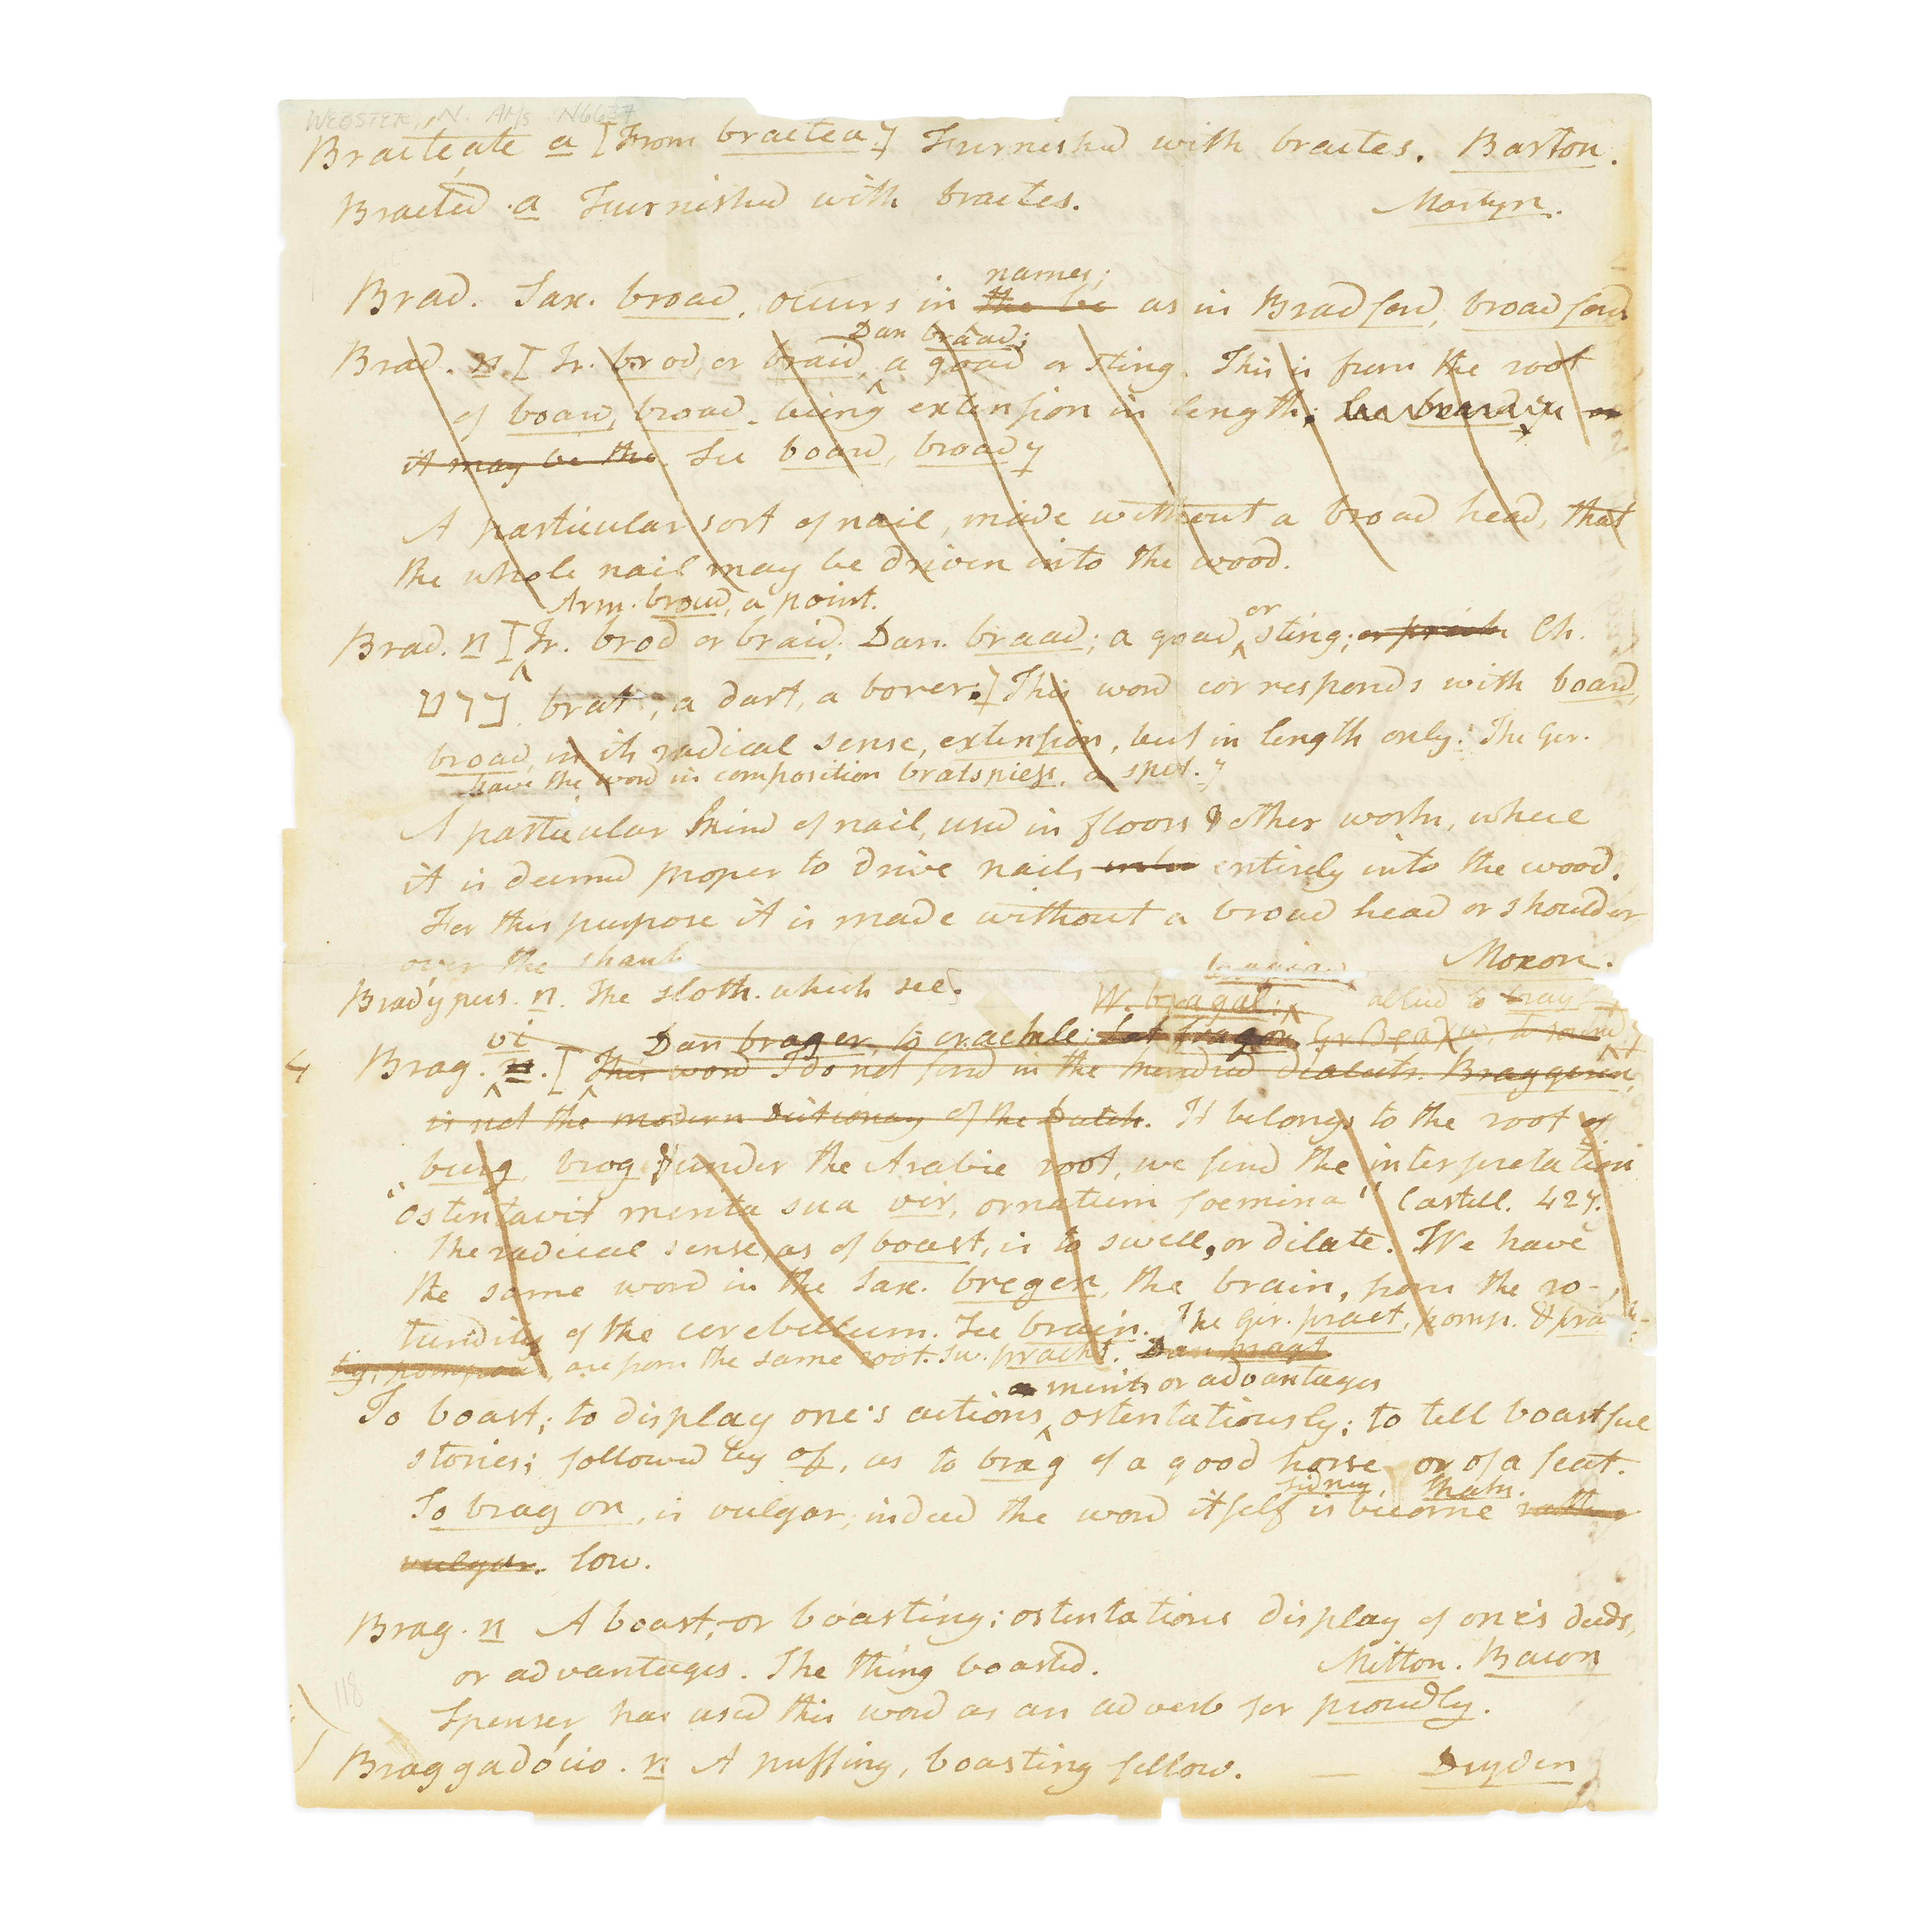 WEBSTER, N. AHs N6637
Bracteate a [From bractea.] Furnished with bractes. Barton.
Bracted. a Furnished with bractes. Martyn.
names;
Brad. Sax. broad, occurs in the be as in Bradford, broad ford
Dan braad;
Brad. n. [Ir. brod or braid, a goad or sting. This is from the root
of board, broad. being extension in length;
it may be the. See board, broad]
A particular sort of nail, made without a broad head, that
the whole nail may be driven into the wood.
Arm. broud, a point.
or
Brad. n [Ir. brod or braid; Dan. braad; a goad, sting; or prick Ch.
ברט brat; a dart, a borer.] This word corresponds with board,
broad, in its radical sense, extension, but in length only. The Ger.
have the word in composition bratspiess, a spit.]
A particular kind of nail, used in floors & other works, where
it is deemed proper to drive nails into entirely into the wood.
For this purpose it is made without a broad head or shoulder
over the shank Moxon.
Bradypus. n. The sloth. which see.
W. bragal; allied to bray
vi Dan brager, to crackle; Gr. βραχω, to sound
4 Brag. n. [This word I do not find in the kindred dialects. Braggeren,
is not the modern dictionary of the Dutch. It belongs to the root of
burg, brag & under the Arabic root, we find the interpretation
"ostentavit merita sua vir, ornatum foemina" Castell. 427.
The radical sense, as of boast, is to swell, or dilate. We have
the same word in the Sax. bregen, the brain, from the ro-
tundity of the cerebellum. See brain. The Ger. pracht, pomp. & präch-
tig, pompous, are from the same root. Sw. pracht. Dan pragt
merits or advantages
To boast; to display one's actions ostentatiously; to tell boastful
stories; followed by of, as to brag of a good horse or of a feat.
Sidney. Shak.
To brag on, is vulgar; indeed the word itself is become rather
vulgar. low.
Brag. n A boast, or boasting; ostentatious display of one's deeds,
or advantages. The thing boasted. Milton. Bacon
118
Spenser has used this word as an adverb for proudly.
Braggadócio. n A puffing, boasting fellow. — Dryden